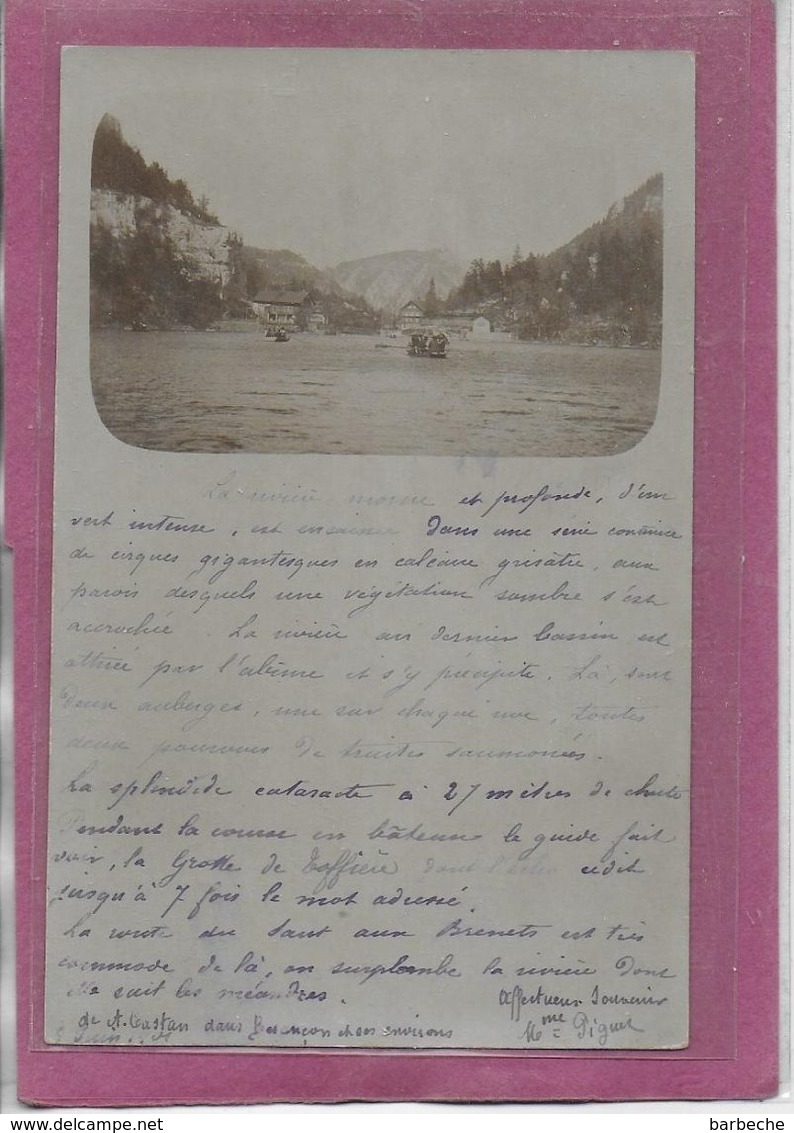 La rivière morne et profonde, d'un
vert intense, est encaissée dans une série continue
de cirques gigantesques en calcaire grisâtre, aux
parois desquels une végétation sombre s'est
accrochée. La rivière au dernier bassin est
attirée par l'abîme et s'y précipite. Là, sont
deux auberges, une sur chaque rive, toutes
deux pourvues de truites saumonées.
La splendide cataracte a 27 mètres de chute
Pendant la course en bâteau le guide fait
voir, la Grotte de Toffière dont l'écho redit
jusqu'à 7 fois le mot adressé.
La route du Saut aux Brenets est très
commode de là, on surplombe la rivière dont
elle suit les méandres.
de A. Castan dans Besançon et ses environs
Affectueux Souvenir
Mme Piguet
barbeche